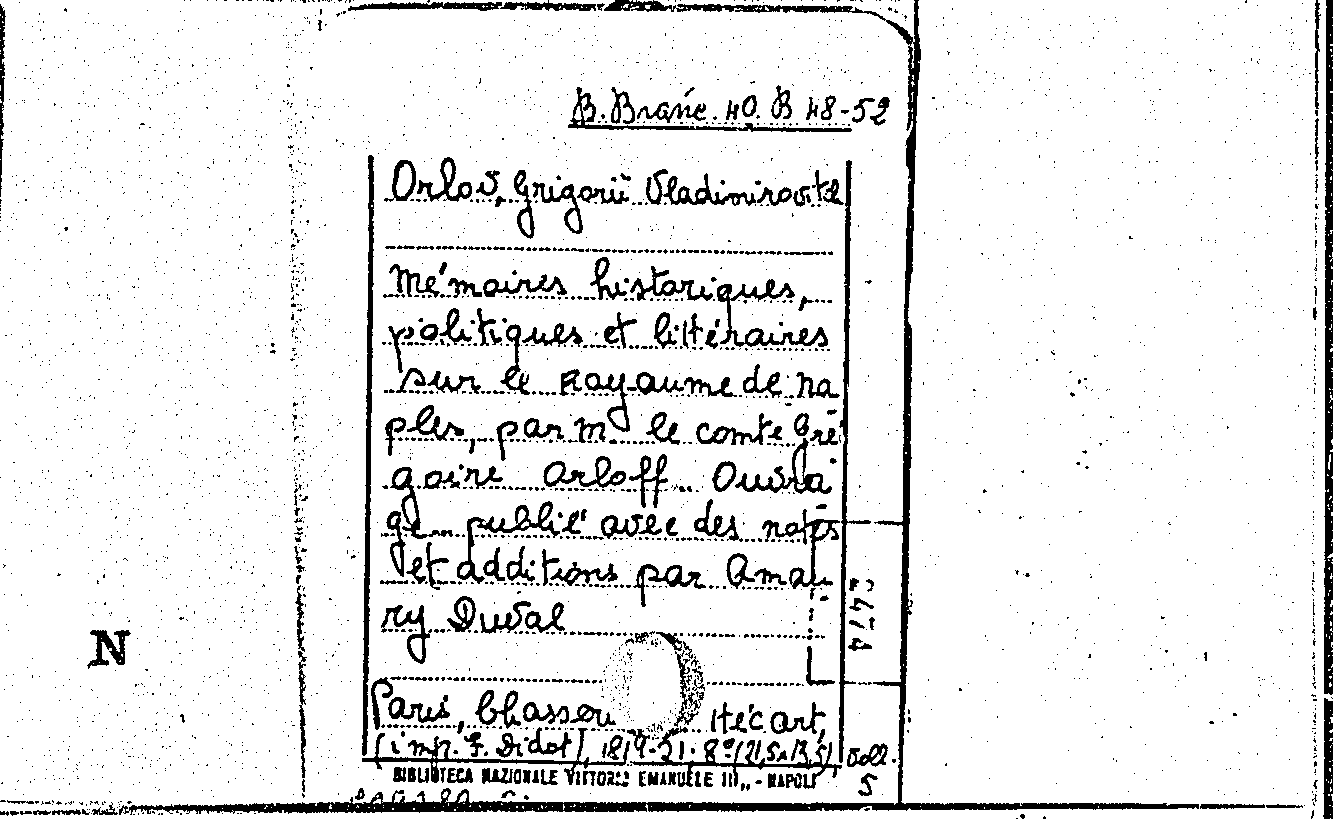 B. Branc. 40. B 48-52
Orlov, Grigoriĭ Vladimirovitch
Mémoires historiques,
politiques et littéraires
sur le Royaume de Na
ples, par M. le comte Gré
goire Orloff.. Ouvra
ge... publié avec des notes
et additions par Amau
ry Duval
N
Paris, Chasseri Hécart,
(imp. F. Didot), 1819-21. 8º (21,5x13,5) Voll.
5
BIBLIOTECA NAZIONALE VITTORIO EMANUELE III„ - NAPOLI